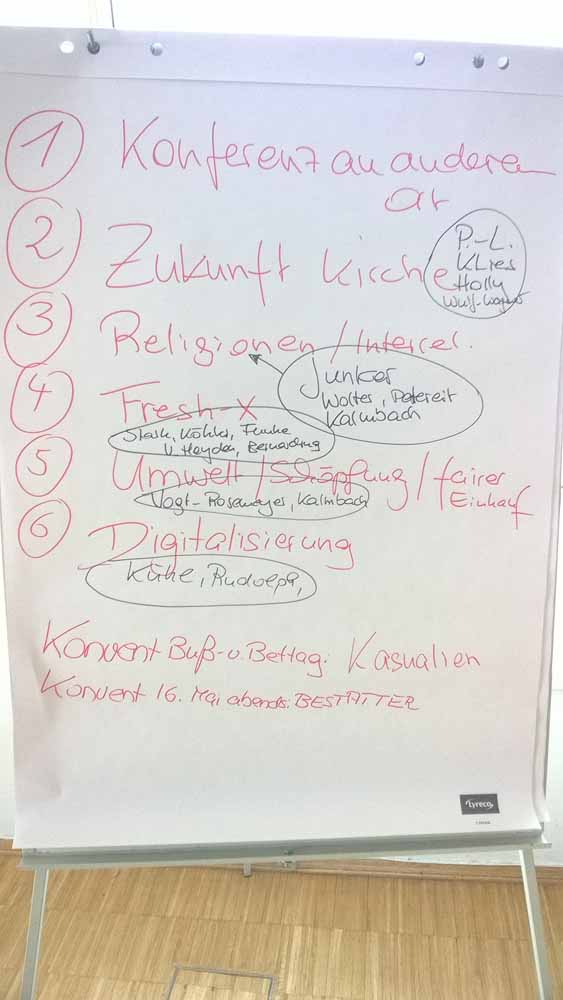 1 Konferenz an anderem
Ort
2 Zukunft Kirche
P.-L.
Klies
Holly
Wulf-Wagner
3 Religionen / Intercel.
Junker
Wolter, Petereit
Kalmbach
4 Fresh-X
Stark, Köhler, Funke
v. Heyden, Bernarding
5 Umwelt / Schöpfung / fairer
Einkauf
Vogt-Rosemeyer, Kalmbach
6 Digitalisierung
Kühe, Rudolph,
Konvent Buß- u. Bettag: Kasualien
Konvent 16. Mai abends: BESTATTER
Lyreco